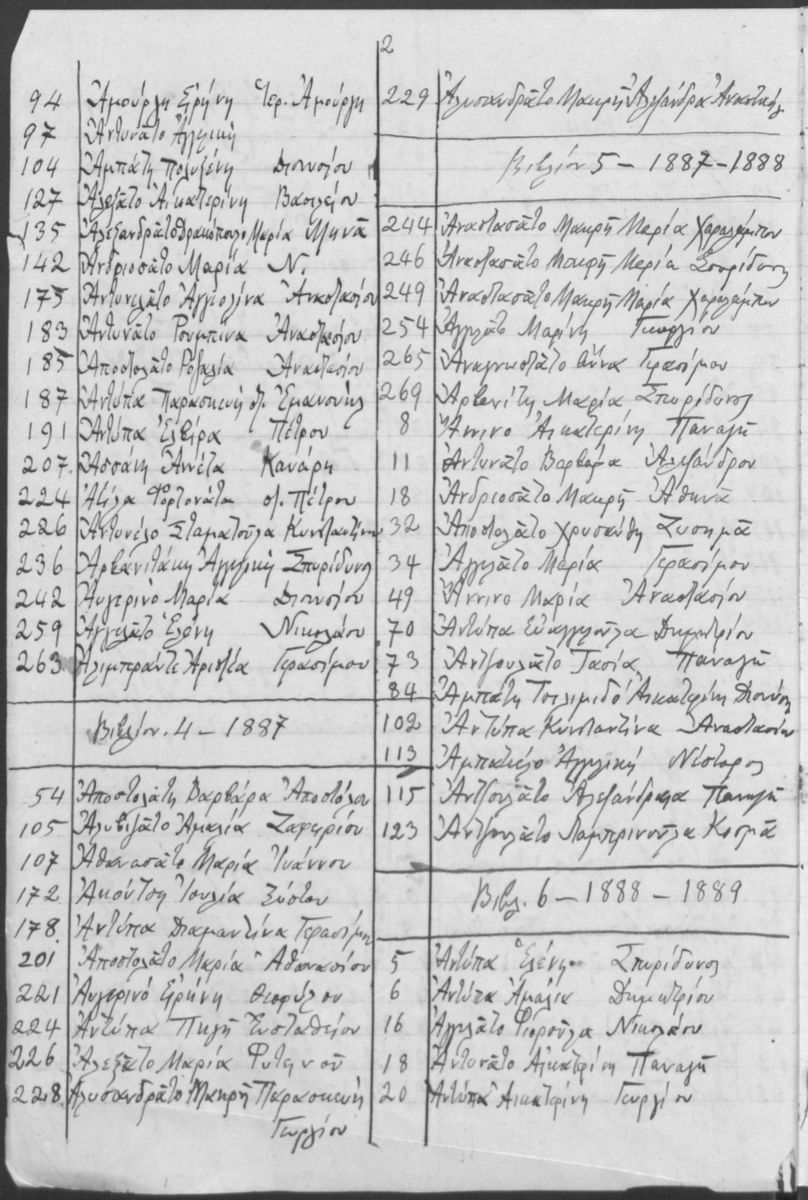 2
94 Ἀμούργη Εἰρήνη Ἱερ. Ἀμούργη
97 Ἀντυνᾶτο Ἀγγελική
104 Ἀμπάτη Πολυξένη Διονυσίου
127 Ἀλεξᾶτο Αἰκατερίνη Βασιλείου
135 Ἀλεξανδρᾶτο Θρακόπουλο Μαρία Μηνᾶ
142 Ἀνδριοσᾶτο Μαρία Ν.
175 Ἀντυνελᾶτο Ἀγγιολίνα Ἀναστασίου
183 Ἀντυνᾶτο Ρουμπίνα Ἀναστασίου
185 Ἀποστολᾶτο Ροζαλία Ἀναστασίου
187 Ἀντύπα Παρασκευή Ἐμανουήλ
191 Ἀντύπα Ἐλβίρα Πέτρου
207. Ἀσσάνη Ἀννέτα Κανάρη
224 Φορτουνάτα Πέτρου
226 Ἀντωνέλο Σταματούλα Κωνσταντίνου
236 Ἀρβανιτάκη Ἀγγελική Σπυρίδωνος
242 Αὐγερινό Μαρία Διονυσίου
259 Ἀγγελᾶτο Ἑλένη Νικολάου
263 Ἀλιμπεράντε Ἀριστέα Γερασίμου
Βιβλίον. 4 – 1887
54 Ἀποστολάτη Βαρβάρα Ἀποστόλου
105 Ἀλυβιζᾶτο Ἀμαλία Ζαφειρίου
107 Ἀθανασᾶτο Μαρία Ἰωάννου
172 Ἀκούτση Ἰουλία Ξύστου
178. Ἀντύπα Διαμαντίνα Γερασίμου
201 Ἀποστολᾶτο Μαρία Ἀθανασίου
221 Αὐγερινό Εἰρήνη Θεοφίλου
224 Ἀντύπα Πηγή Εὐσταθείου
226 Ἀλεξᾶτο Μαρία Φωτεινοῦ
228 Ἀλυσανδρᾶτο Μακρῆ Παρασκευή
Γεωργίου
229 Ἀλυσανδρᾶτο Μακρῆ Ἀλεξάνδρα
Βιβλίον 5 – 1887 – 1888
244 Ἀναστασᾶτο Μακρῆ Μαρία Χαραλάμπου
246 Ἀναστασᾶτο Μακρῆ Μαρία Σπυρίδωνος
249 Ἀναστασᾶτο Μακρῆ Μαρία Χαραλάμπου
254 Ἀγγελᾶτο Μαρίνη Γεωργίου
265 Ἀναγνωστᾶτο Ἄννα Γερασίμου
269 Ἀρβανίτη Μαρία Σπυρίδωνος
8 Ἄννινο Αἰκατερίνη Παναγῆ
11 Ἀντυνᾶτο Βαρβάρα Ἀλεξάνδρου
18 Ἀνδριοσᾶτο Μακρῆ Ἀθηνᾶ
32 Ἀποστολᾶτο Χρυσάνθη Ζυσημᾶ
34 Ἀγγελᾶτο Μαρία Γερασίμου
49 Ἄννινο Μαρία Ἀναστασίου
70 Ἀντύπα Εὐαγγελούλα Δημητρίου
73 Ἀντζουλᾶτο Τασία Παναγῆ
84 Ἀμπάτη Τσιλιμιδό Αἰκατερίνη Διονύση
102 Ἀντύπα Κωνσταντίνα Ἀναστασίου
113 Ἀμπατιέλο Ἀγγελική Νέστορος
115 Ἀντζουλᾶτο Ἀλεξάνδρα Παναγῆ
123 Ἀντζουλᾶτο Λαμπρινούλα Κοσμᾶ
Βιβλ. 6 – 1888 – 1889
5 Ἀντύπα Ἑλένη Σπυρίδωνος
6 Ἀντύπα Ἀμαλία Δημητρίου
16 Ἀγγελᾶτο Φιορούλα Νικολάου
18 Ἀντυνᾶτο Αἰκατερίνη Παναγῆ
20 Ἀντύπα Αἰκατερίνη Γεωργίου